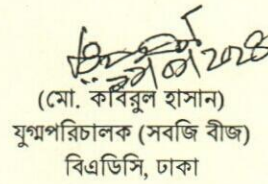 (মো. কবিরুল হাসান)
যুগ্মপরিচালক (সবজি বীজ)
বিএডিসি, ঢাকা